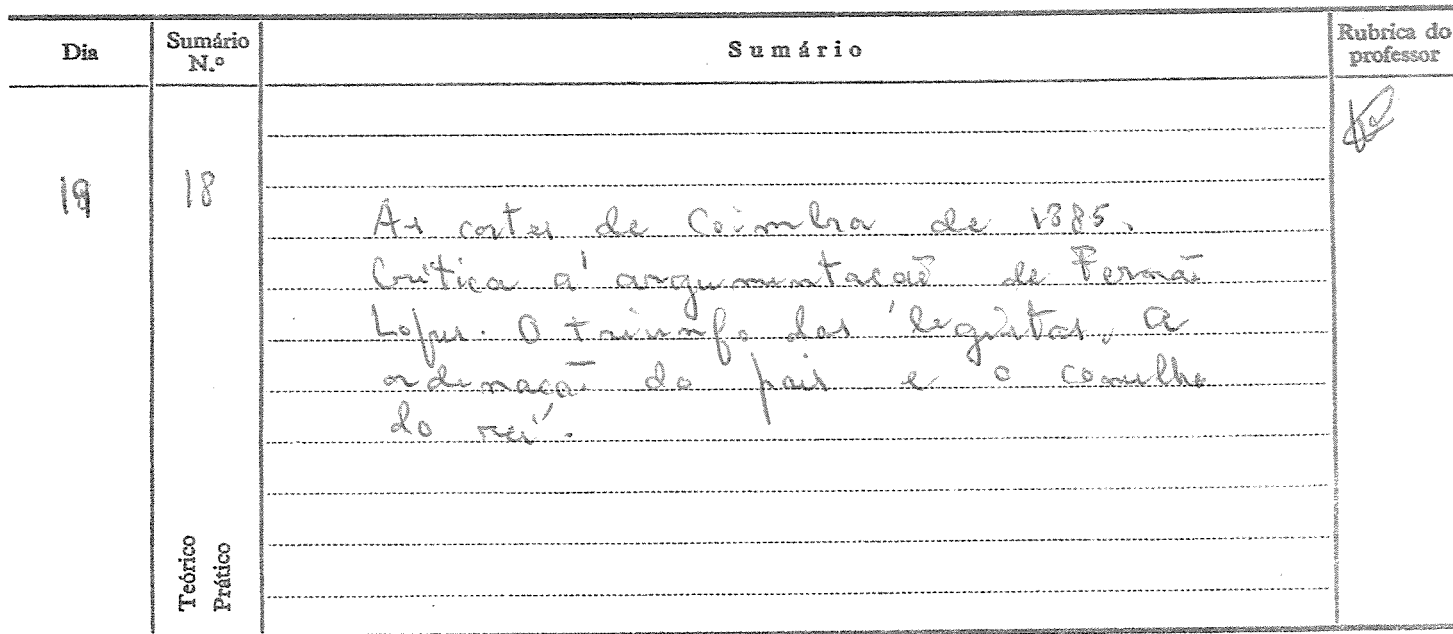 Dia
Sumário N.º
Sumário
Rubrica do professor
19
18
As cortes de Coimbra de 1385.
Crítica à argumentação de Fernão
Lopes. O triunfo dos legistas, a
ordenação do país e o conselho
do rei.
Teórico
Prático